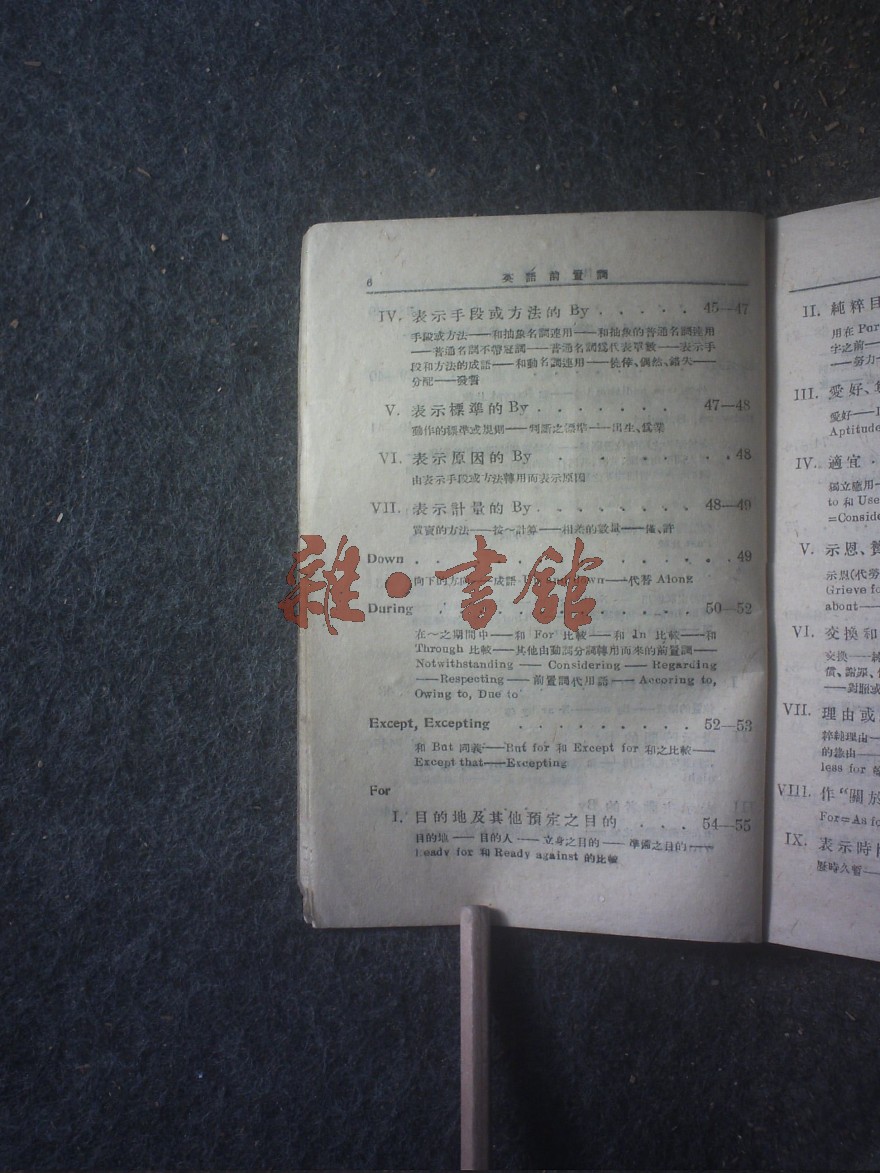 6
英語前置詞
IV. 表示手段或方法的 By . . . . . 45—47
手段或方法——和抽象名詞連用——和抽象的普通名詞連用
——普通名詞不帶冠詞——普通名詞爲代表單數——表示手
段和方法的成語——和動名詞連用——從倖、偶然、錯失——
分配——發誓
V. 表示標準的 By . . . . . . . . 47—48
動作的標準或規則——判斷之標準——出生、爲業
VI. 表示原因的 By . . . . . . . . 48
由表示手段或方法轉用而表示原因
VII. 表示計量的 By . . . . . . . . 48—49
買賣的方法——按～計算——相差的數量——僅、許
Down . . . . . . . . . . . . . 49
向下的方向——成語 down——代替 Along
雜·書館
During . . . . . . . . . . . . 50—52
在～之期間中——和 For 比較——和 In 比較——和
Through 比較——其他由動詞分詞轉用而來的前置詞——
Notwithstanding —— Considering —— Regarding
——Respecting——前置詞代用語——Accoring to,
Owing to, Due to
Except, Excepting . . . . . . . . . 52—53
和 But 同義——But for 和 Except for 和之比較——
Except that——Excepting
For
I. 目的地及其他預定之目的 . . . 54—55
目的地——目的人——立身之目的——準備之目的——
Ready for 和 Ready against 的比較
II. 純粹目
用在 Pur
字之前——
——努力
III. 愛好、
愛好——
Aptitude
IV. 適宜 .
獨立應用
to 和 Use
=Conside
V. 示恩、
示恩(代勞
Grieve fo
about——
VI. 交換和
交換——
償、謝罪、
VII. 理由或
粹純理由—
的緣由——
less for
VIII. 作“關於
For=As fo
IX. 表示時
歷時久暫——